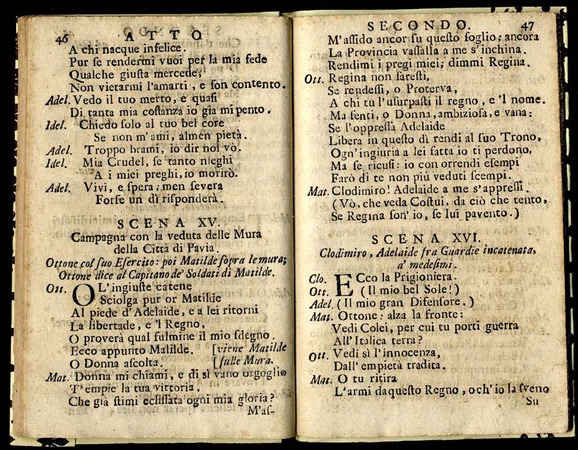 46 ATTO
A chi nacque infelice.
Pur se rendermi vuoi per la mia fede
Qualche giusta mercede,
Non vietarmi l'amarti, e son contento.
Adel. Vedo il tuo merto, e quasi
Di tanta mia costanza io già mi pento.
Idel. Chiedo solo al tuo bel core
Se non m'ami, almen pietà.
Adel. Troppo brami, io dir nol vò.
Idel. Mia Crudel, se tanto nieghi
A i miei preghi, io morirò.
Adel. Vivi, e spera; men severa
Forse un dì risponderà.
SCENA XV.
Campagna con la veduta delle Mura
della Città di Pavia.
Ottone col suo Esercito: poi Matilde sopra le mura;
Ottone dice al Capitano de' Soldati di Matilde.
Ott. OL'ingiuste catene
Sciolga pur or Matilde
Al piede d'Adelaide, e a lei ritorni
La libertade, e 'l Regno,
O proverà qual fulmine il mio sdegno.
Ecco appunto Matilde. [viene Matilde
O Donna ascolta. [sulle Mura.
Mat. Donna mi chiami, e di sì vano orgoglio
T'empie la tua vittoria,
Che già stimi eclissata ogni mia gloria?
M'as-
SECONDO. 47
M'assido ancor su questo soglio; ancora
La Provincia vassalla a me s'inchina.
Rendimi i pregi miei; dimmi Regina.
Ott. Regina non saresti,
Se rendessi, o Proterva,
A chi tu l'usurpasti il regno, e 'l nome.
Ma senti, o Donna, ambiziosa, e vana:
Se l'oppressa Adelaide
Libera in questo dì rendi al suo Trono,
Ogn'ingiuria a lei fatta io ti perdono,
Ma se ricusi: io con orrendi esempi
Farò di te non più veduti scempi.
Mat. Clodimiro! Adelaide a me s'appressi.
(Vò, che veda Costui, da ciò che tento,
Se Regina son' io, se lui pavento.)
SCENA XVI.
Clodimiro, Adelaide fra Guardie incatenata,
a' medesimi.
Clo. ECco la Prigioniera.
Ott. (Il mio bel Sole!)
Adel. (Il mio gran Difensore.)
Mat. Ottone: alza la fronte:
Vedi Colei, per cui tu porti guerra
All'Italica terra?
Ott. Vedi sì l'innocenza,
Dall' empietà tradita.
Mat. O tu ritira
L'armi da questo Regno, och'io la sveno
Su